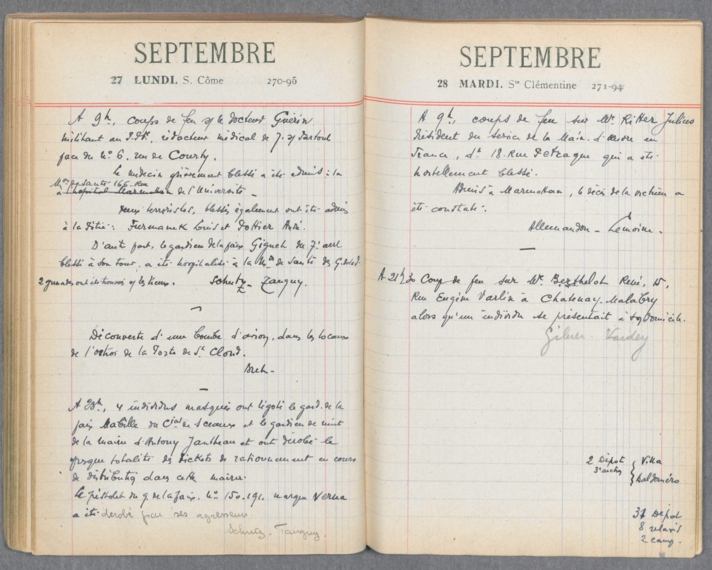 SEPTEMBRE
27 LUNDI. S. Côme 270-95
A 9h, coups de feu s/ le Docteur Guérin
militant au P.P.F., rédacteur médical de J. s/ Partout
face du No 6, rue de Courty.
Le médecin grièvement blessé a été admis à la
Mon de Santé 166, Rue
à l'hopital Marmottan de l'Université -
Deux terroristes, blessés également ont été admis
à la Pitié : Furmanek Louis et Pottier André.
D'autre part, le gardien de la paix Gignet du 7e arrt
blessé à son tour, a été hospitalisé à la Mon de Santé des G. de la P.
2 grenades ont été trouvées s/ les tueurs. Schutz - Tanguy.
Découverte d'une bombe d'avion, dans les locaux
de l'octroi de la Porte de St Cloud.
A 23h, 4 individus masqués ont ligoté le gard. de la
paix Mabille du Cial de Sceaux et le gardien de nuit
de la mairie d'Antony Jantheau et ont dérobé la
presque totalité des tickets de rationnement en cours
de distribution dans cette mairie.
Le pistolet du g. de la paix, No 150.191. marque Verna
a été dérobé par ses agresseurs
Schutz - Tanguy.
SEPTEMBRE
28 MARDI. Ste Clémentine 271-94
A 9h, coups de feu sur Mr. Ritter Julius
Président du Service de la Main d'œuvre en
France, dt 18. Rue Pétrarque qui a été
mortellement blessé.
Admis à Marmottan, le décès de la victime a
été constaté.
Allemandou - Lemoine -
A 21h30 Coup de feu sur Mr. Berthelot René, 15,
Rue Eugène Varlin à Chatenay-Malabry
alors qu'un individu se présentait à son domicile.
2 Dépôt
Villa
31 Dépôt
8 relaxés
2 camp.